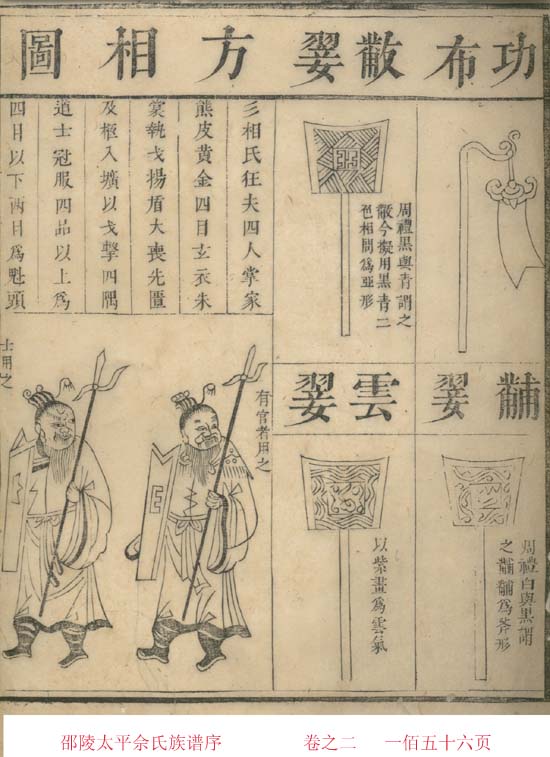 功布
黻翣
周禮黑與青謂之
黻今擬用黑青二
色相間為亞形
黼翣
周禮白與黑謂
之黼黼為斧形
雲翣
以紫畫為雲氣
方相圖
方相氏狂夫四人掌家
熊皮黃金四目玄衣朱
裳執戈揚盾大喪先匶
及柩入壙以戈擊四隅
道士冠服四品以上為
四目以下兩目為魁頭
有官者用之
士用之
邵陵太平佘氏族谱序 卷之二 一佰五十六页